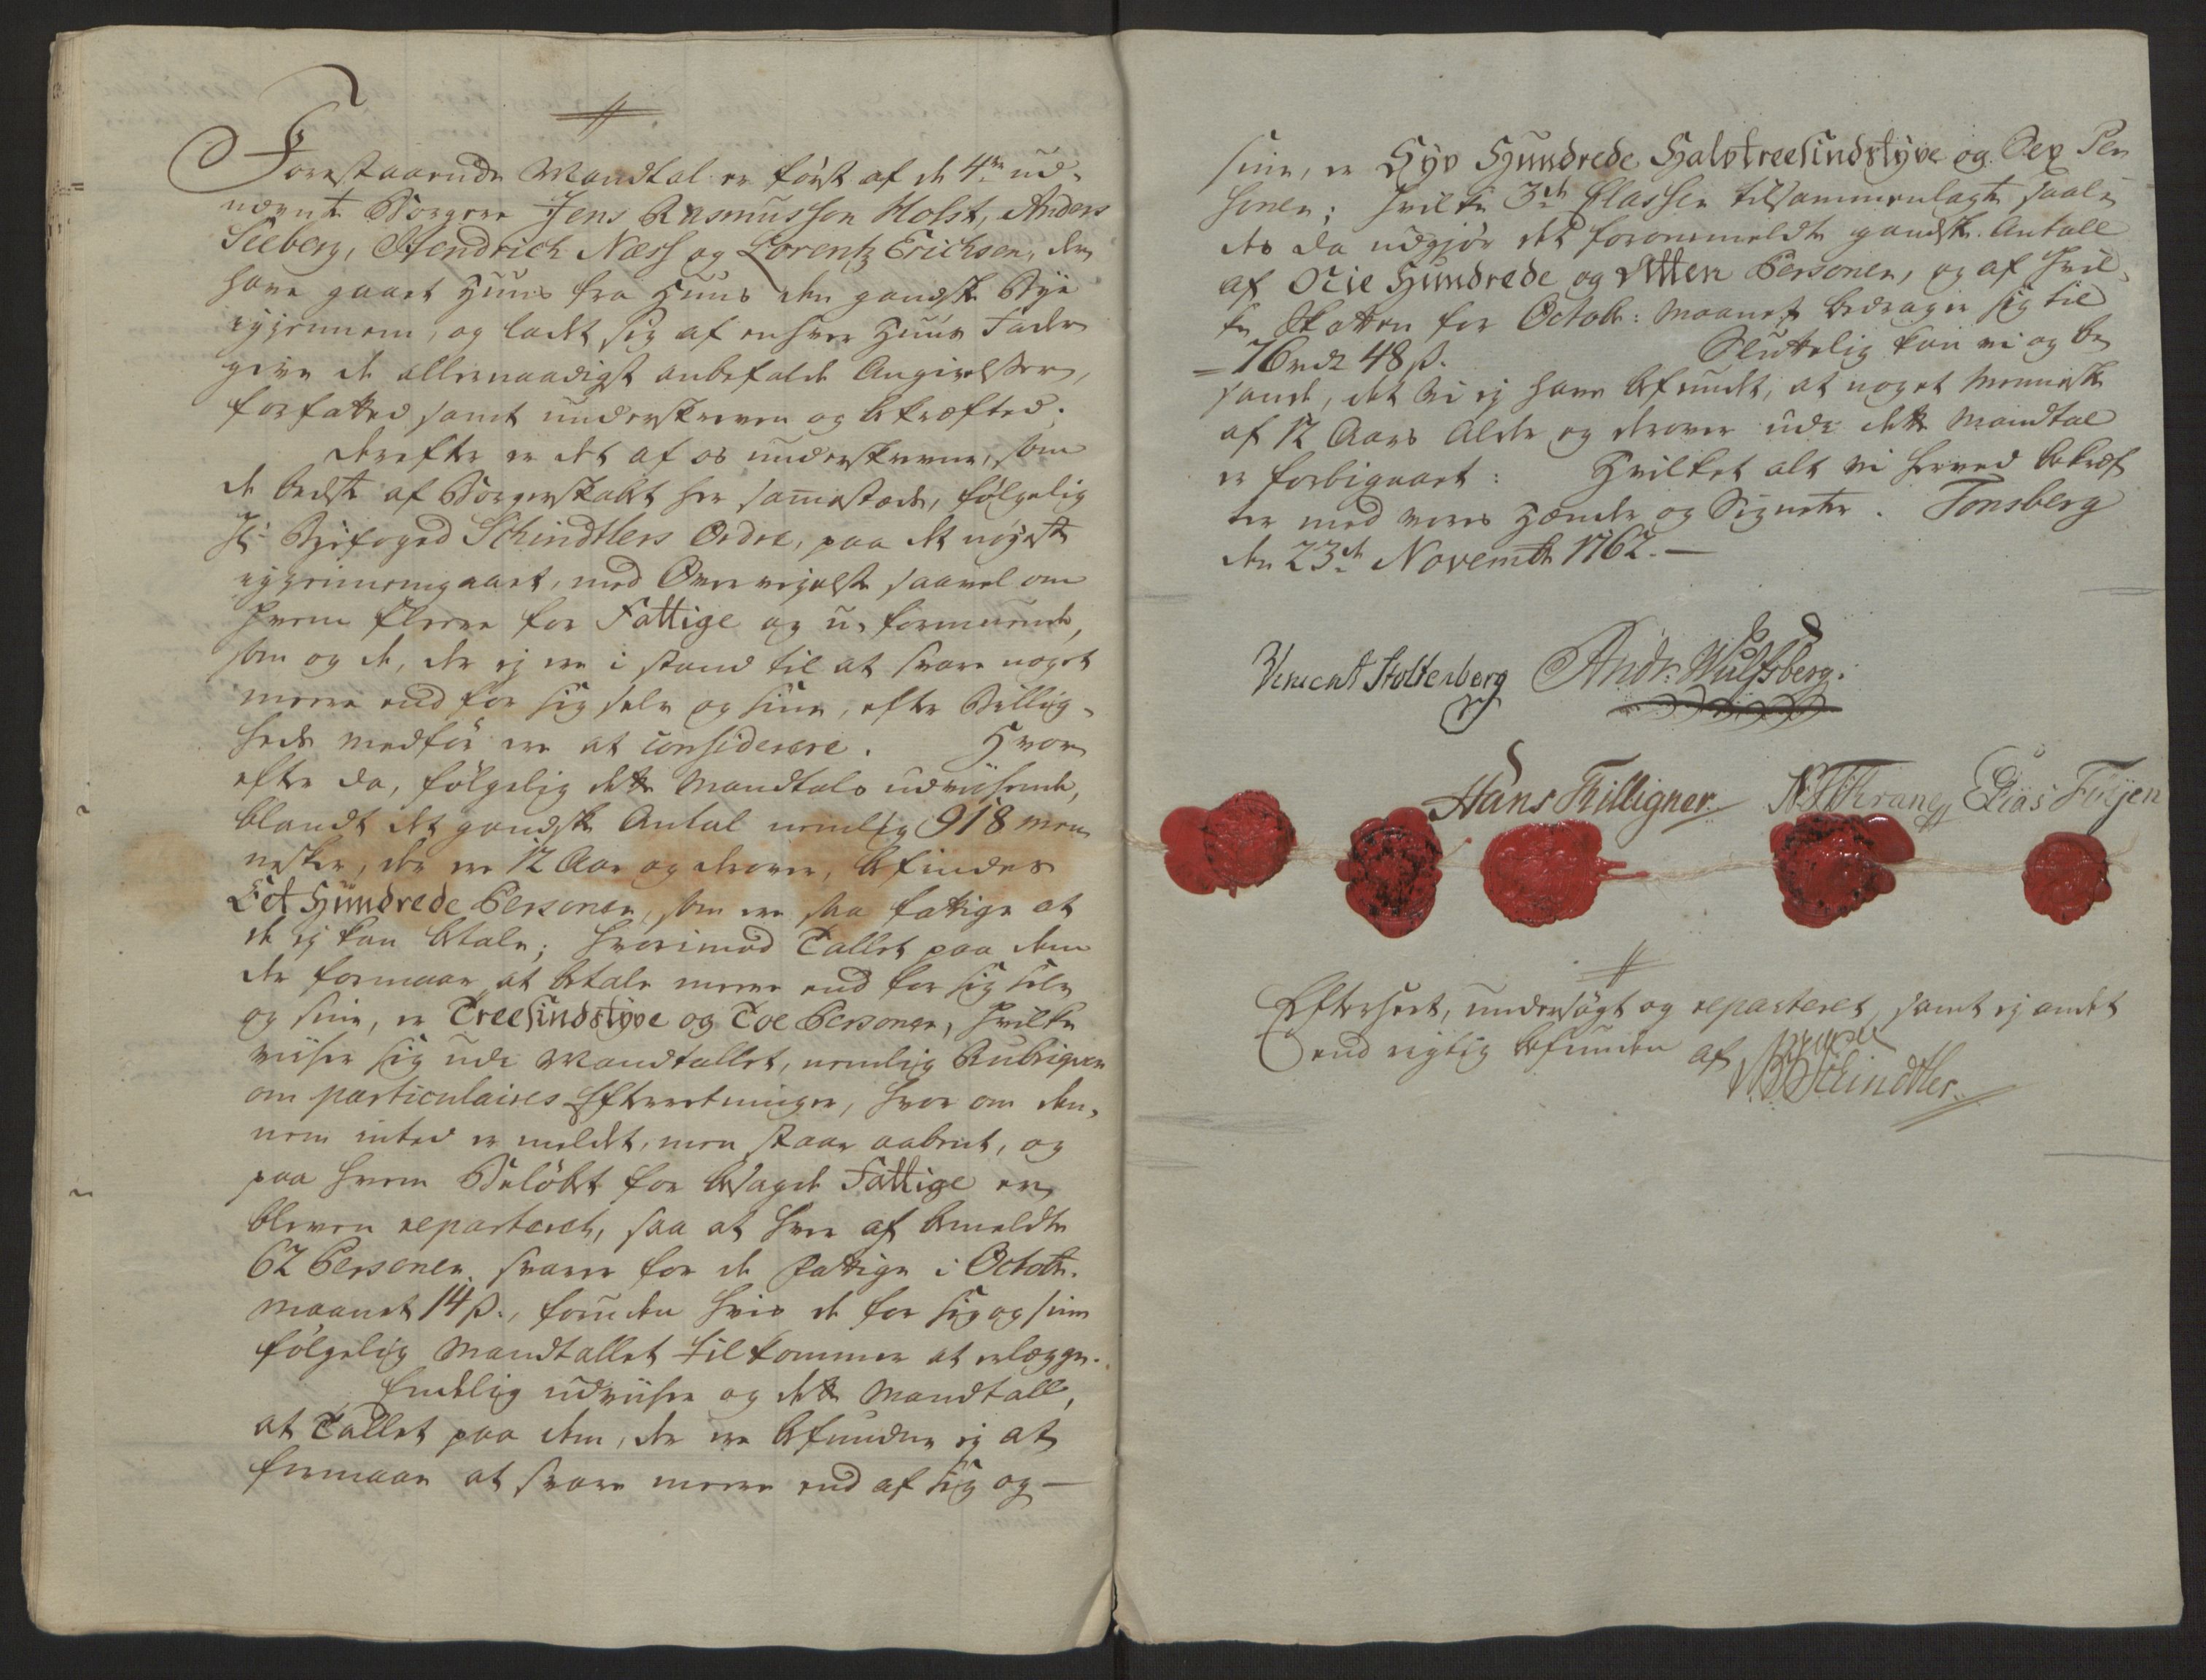 Forestaaende Mandtal er først af de 4re ud-
nævnte Borgere Jens Rasmussøn Holst, Anders
Seeberg, Hendrich Næss og Lorentz Erichsen, der
have gaaet Huus fra Huus den gandske Bye
igiennem, og ladet sig af enhver Huus Fader
give de allernaadigst anbefalede Angivelser,
forfatted samt underskreven og bekræfted;
Derefter er det af os underskrevne, som
de bedste af Borgerskabet her sammestæds, følgelig
Hr. Byefoged Schindtlers Ordre, paa det nøyeste
igiennemgaaet, med Overveyelse saavel om
hvem fleere for Fattige og u-formuende,
som og de, der ej ere i stand til at svare noget
meere end for sig selv og sine, efter Billig-
heds medfør ere at considerere. Hvor
efter da, følgelig dette Mandtals udviisende,
blandt det gandske Antal nemlig 918 men
nesker, der ere 12 Aar og derover, befindes
Eet Hundrede Personer, som ere saa fattige at
de ej kan betale; hvorimod Tallet paa dem
der formaaer at betale meere end for sig selv
og sine, er Treesindstyve og Toe Personer, hvilke
viiser sig udi Mandtallet, nemlig Rubriqven
om particulaires Efterretninger, hvor om den-
nem intet er meldet, men staar aabent, og
paa hvem Beløbet for besagde Fattige er
bleven reparteret, saa at hver af bemeldte
62 Personer svarer for de fattige i Octobr.
Maanet 14 ß., foruden hvis de for sig og sine
følgelig Mandtallet tilkommer at erlægge.
Endelig udviiser og dette Mandtall,
at Tallet paa dem, der ere befunden ej at
formaae at svare meere end af sig og —
sine, er Syv Hundrede Halvtreesindstyve og Sex Per
soner; hvilke 3de Classer tilsammenlagte saale
des da udgjør det foranmeldte gandske Antall
af Nie Hundrede og Atten Personer, og af hvil-
ke Skatten for Octobr: Maanet bedrager sig til
= 76 rdr 48 ß. Sluttelig kan vi og be
sande, det vi ej have befundet, at noget Menneske
af 12 Aars Alder og derover udi dette Mandtal
er forbigaaet: Hvilket alt vi herved bekræf
ter med vores Hænder og Signeter. Tonsberg
den 23de Novembr 1762. —
Vincent Stoltenberg Andr: Wulfsberg.
Hans Thilligner. N: Th: Krane Elias Füljen
Efterseet, undersøgt og reparteret, samt ej andet
end rigtig befunden af
Schindtler.